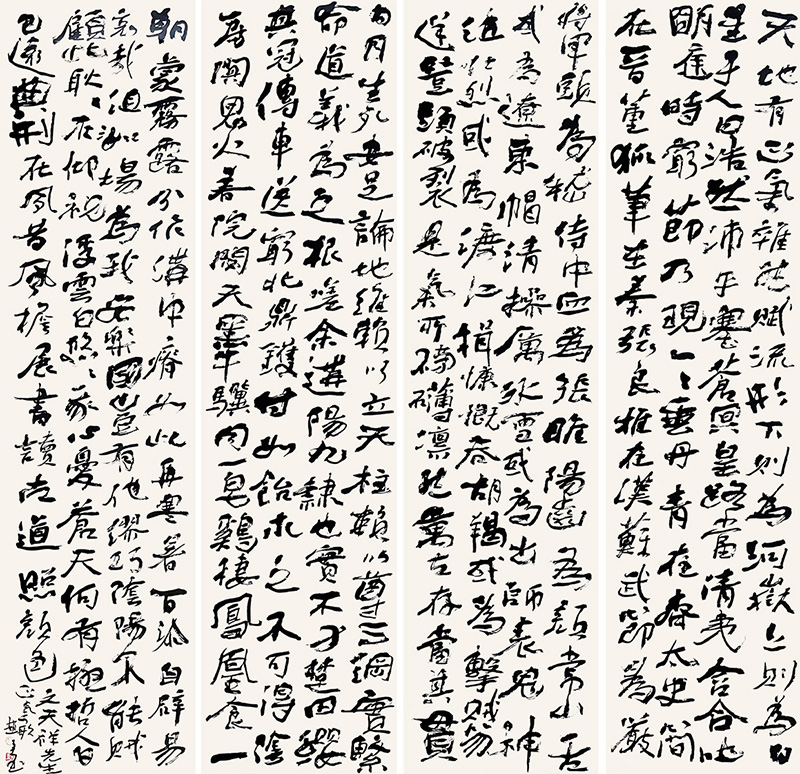 天地有正氣雜然賦流形下則為河嶽上則為日
星于人曰浩然沛乎塞蒼冥皇路當清夷含合吐
明庭時窮節乃現一一垂丹青在齊太史簡
在晉董狐筆在秦張良椎在漢蘇武節為嚴
將軍頭為嵇侍中血為張睢陽齒為顏常山舌
或為遼東帽清操厲冰雪或為出師表鬼神
泣壯烈或為渡江楫慷慨吞胡羯或為擊賊笏
逆豎頭破裂是氣所磅礴凜烈萬古存當其貫
日月生死安足論地維賴以立天柱賴以尊三綱實繫
命道義為之根嗟余遘陽九隸也實不力楚囚纓
其冠傳車送窮北鼎鑊甘如飴求之不可得陰
房闃鬼火春院閟天黑牛驥同一皂雞棲鳳凰食一
朝蒙霧露分作溝中瘠如此再寒暑百沴自辟易
哀哉沮洳場為我安樂國也豈有他繆巧陰陽不能賊
顧此耿耿在仰視浮雲白悠悠我心憂蒼天何有極哲人日
已遠典刑在夙昔風檐展書讀古道照顏色
文天祥先生
正氣歌